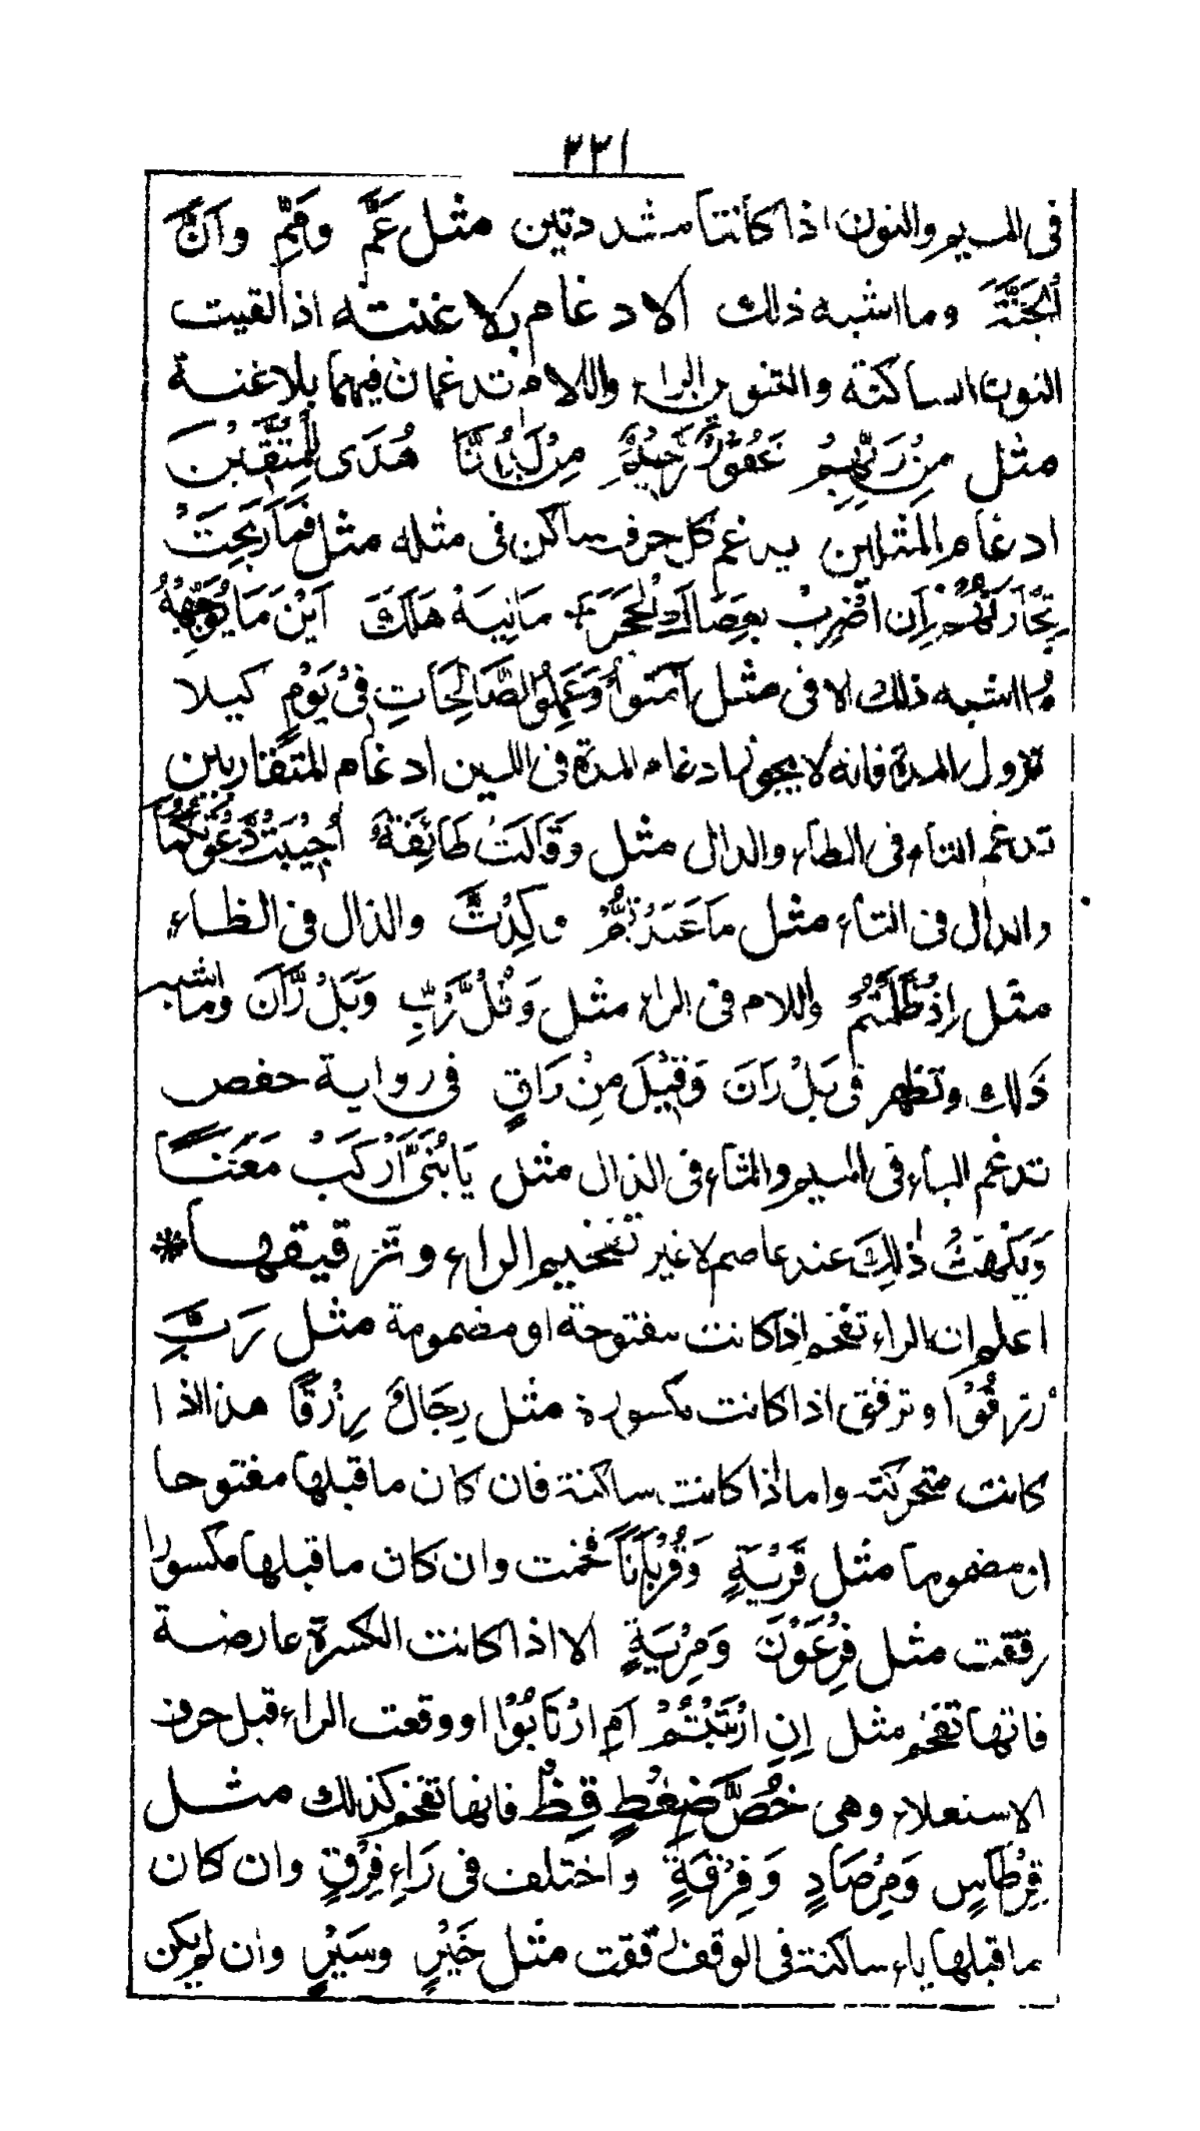 ٢٢١
فى الميم والنون اذا كانتا مشددتين مثل عَمَّ وَمِمَّ وَاَنَّ
الْجَنَّةَ وما اشبه ذلك الادغام بلا غنته اذا لقيت
النون الساكنة والتنوين الراء واللام تدغمان فيهما بلا غنة
مثل مِنْ رَبِّهِمْ غَفُوْرٌ رَّحِيْمٌ مِنْ لَّدُنَّا هُدًى لِّلْمُتَّقِيْنَ
ادغام المثلين يدغم كل حرف ساكن فى مثله مثل فَمَا رَبِحَتْ
تِّجَارَتُهُمْ اَنِ اضْرِبْ بِعَصَاكَ الْحَجَرَ مَالِيَهْ هَلَكَ اَيْنَ مَا يُوَجِّهْهُ
وما اشبه ذلك الا فى مثل آمَنُوْا وَعَمِلُوا الصَّالِحَاتِ فِىْ يَوْمٍ كيلا
تزول المدة فانه لا يجوز ادغام المدة فى اللين ادغام المتقاربين
تدغم التاء فى الطاء والدال مثل وَقَالَتْ طَائِفَةٌ اُجِيْبَتْ دَّعْوَتُكُمَا
والدال فى التاء مثل مَا عَبَدْتُّمْ وكِدْتَّ والذال فى الظاء
مثل اِذْ ظَلَمْتُمْ واللام فى الراء مثل وَقُلْ رَّبِّ وَبَلْ رَّانَ وما اشبه
ذَلك وتظهر فى بَلْ رَانَ وَقِيْلَ مَنْ رَاقٍ فى رواية حفص
تدغم الباء فى الميم والثاء فى الذال مثل يَابُنَىَّ ارْكَبْ مَعَنَا
وَيَلْهَثْ ذٰلِكَ عند عاصم لا غير تفخيم الراء وترقيقها *
اعلم ان الراء تفخم اذا كانت مفتوحة او مضمومة مثل رَبِّ
رُزِقُوْا وترقق اذا كانت مكسورة مثل رِجَالٌ رِزْقًا هذا اذا
كانت متحركته واما اذا كانت ساكنة فان كان ما قبلها مفتوحا
او مضموما مثل قَرْيَةٍ وَقُرْبَانًا فخمت وان كان ما قبلها مكسورا
رققت مثل فِرْعَوْنَ وَمِرْيَةٍ الا اذا كانت الكسرة عارضة
فانها تفخم مثل اِنِ ارْتَبْتُمْ اَمِ ارْتَابُوْا او وقعت الراء قبل حروف
الاستعلاء وهى خُصَّ ضَغْطٍ قِظْ فانها تفخم كذلك مثل
قِرْطَاسٍ وَمِرْصَادٍ وَفِرْقَةٍ واختلف فى رَاءِ فِرْقٍ وان كان
ما قبلها ياء ساكنة فى الوقف رققت مثل خَيْرٍ وسَيْرٍ وان لم يكن